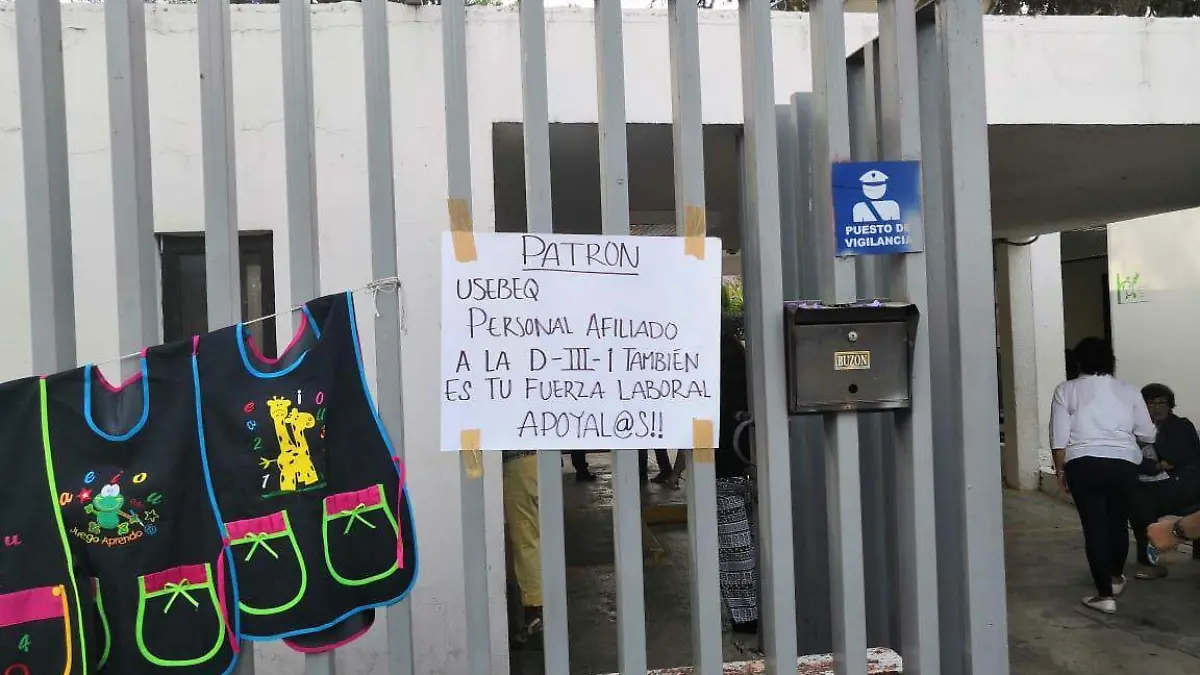 PATRÓN
USEBEQ
PERSONAL AFILIADO
A LA D-III-1 TAMBIÉN
ES TU FUERZA LABORAL
APOYAL@S!!
PUESTO DE
VIGILANCIA
BUZON
a e i o u
Juego Aprendo